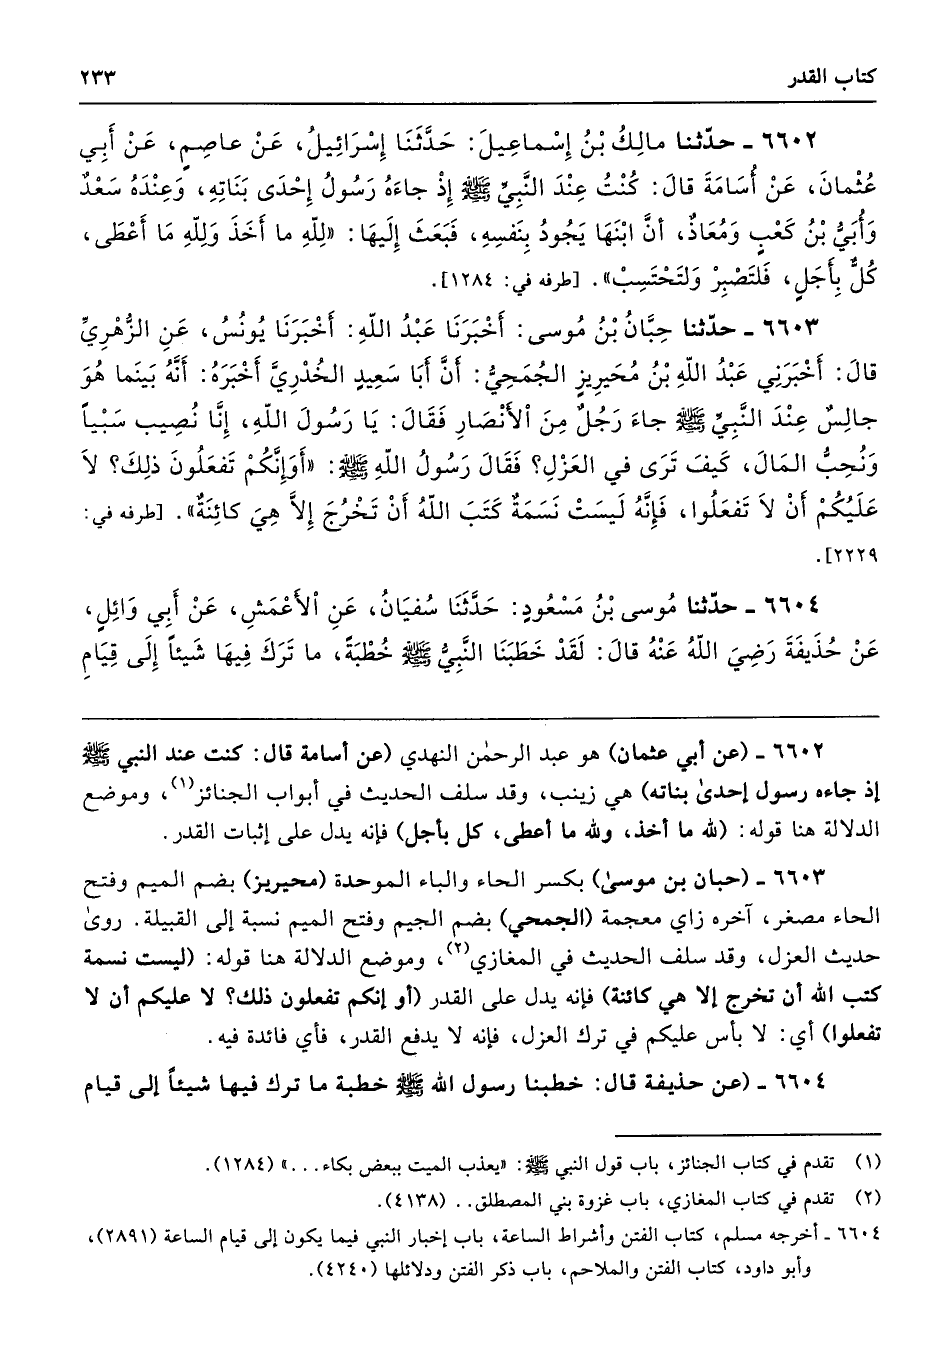 كتاب القدر ٢٣٣
٦٦٠٢ ـ حدّثنا مالِكُ بْنُ إِسْماعِيلَ: حَدَّثَنَا إِسْرَائِيلُ، عَنْ عاصِمٍ، عَنْ أَبِي
عُثْمانَ، عَنْ أُسَامَةَ قالَ: كُنْتُ عِنْدَ النَّبِيِّ ﷺ إِذْ جاءَهُ رَسُولُ إِحْدَى بَنَاتِهِ، وَعِنْدَهُ سَعْدٌ
وَأُبَيُّ بْنُ كَعْبٍ وَمُعَاذٌ، أنَّ ابْنَهَا يَجُودُ بِنَفسِهِ، فَبَعَثَ إِلَيهَا: «لِلّهِ ما أَخَذَ وَلِلّهِ مَا أَعْطَى،
كُلٌّ بِأَجَلٍ، فَلتَصْبِرْ وَلتَحْتَسِبْ». [طرفه في: ١٢٨٤].
٦٦٠٣ ـ حدّثنا حِبَّانُ بْنُ مُوسى: أَخْبَرَنَا عَبْدُ اللّهِ: أَخْبَرَنَا يُونُسُ، عَنِ الزُّهْرِيِّ
قالَ: أَخْبَرَنِي عَبْدُ اللّهِ بْنُ مُحَيرِيزٍ الجُمَحِيُّ: أَنَّ أَبَا سَعِيدٍ الخُدْرِيَّ أَخْبَرَهُ: أَنَّهُ بَينَما هُوَ
جالِسٌ عِنْدَ النَّبِيِّ ﷺ جاءَ رَجُلٌ مِنَ الأَنْصَارِ فَقَالَ: يَا رَسُولَ اللّهِ، إِنَّا نُصِيب سَبْياً
وَنُحِبُّ المَالَ، كَيفَ تَرَى في العَزْلِ؟ فَقَالَ رَسُولُ اللّهِ ﷺ: «أَوَإِنَّكُمْ تَفعَلُونَ ذلِكَ؟ لاَ
عَلَيكُمْ أَنْ لاَ تَفعَلُوا، فَإِنَّهُ لَيسَتْ نَسَمَةٌ كَتَبَ اللّهُ أَنْ تَخْرُجَ إِلاَّ هِيَ كائِنَةٌ». [طرفه في:
٢٢٢٩].
٦٦٠٤ ـ حدّثنا مُوسى بْنُ مَسْعُودٍ: حَدَّثَنَا سُفيَانُ، عَنِ الأَعْمَشِ، عَنْ أَبِي وَائِلٍ،
عَنْ حُذَيفَةَ رَضِيَ اللّهُ عَنْهُ قالَ: لَقَدْ خَطَبَنَا النَّبِيُّ ﷺ خُطْبَةً، ما تَرَكَ فِيهَا شَيئاً إِلَى قِيَامِ
٦٦٠٢ ـ (عن أبي عثمان) هو عبد الرحمٰن النهدي (عن أسامة قال: كنت عند النبي ﷺ
إذ جاءه رسول إحدىٰ بناته) هي زينب، وقد سلف الحديث في أبواب الجنائز(١)، وموضع
الدلالة هنا قوله: (لله ما أخذ، ولله ما أعطى، كل بأجل) فإنه يدل على إثبات القدر.
٦٦٠٣ ـ (حبان بن موسىٰ) بكسر الحاء والباء الموحدة (محيريز) بضم الميم وفتح
الحاء مصغر، آخره زاي معجمة (الجمحي) بضم الجيم وفتح الميم نسبة إلى القبيلة. روىٰ
حديث العزل، وقد سلف الحديث في المغازي(٢)، وموضع الدلالة هنا قوله: (ليست نسمة
كتب الله أن تخرج إلا هي كائنة) فإنه يدل على القدر (أو إنكم تفعلون ذلك؟ لا عليكم أن لا
تفعلوا) أي: لا بأس عليكم في ترك العزل، فإنه لا يدفع القدر، فأي فائدة فيه.
٦٦٠٤ ـ (عن حذيفة قال: خطبنا رسول الله ﷺ خطبة ما ترك فيها شيئاً إلى قيام
(١) تقدم في كتاب الجنائز، باب قول النبي ﷺ: «يعذب الميت ببعض بكاء...» (١٢٨٤).
(٢) تقدم في كتاب المغازي، باب غزوة بني المصطلق.. (٤١٣٨).
٦٦٠٤ ـ أخرجه مسلم، كتاب الفتن وأشراط الساعة، باب إخبار النبي فيما يكون إلى قيام الساعة (٢٨٩١)،
وأبو داود، كتاب الفتن والملاحم، باب ذكر الفتن ودلائلها (٤٢٤٠).